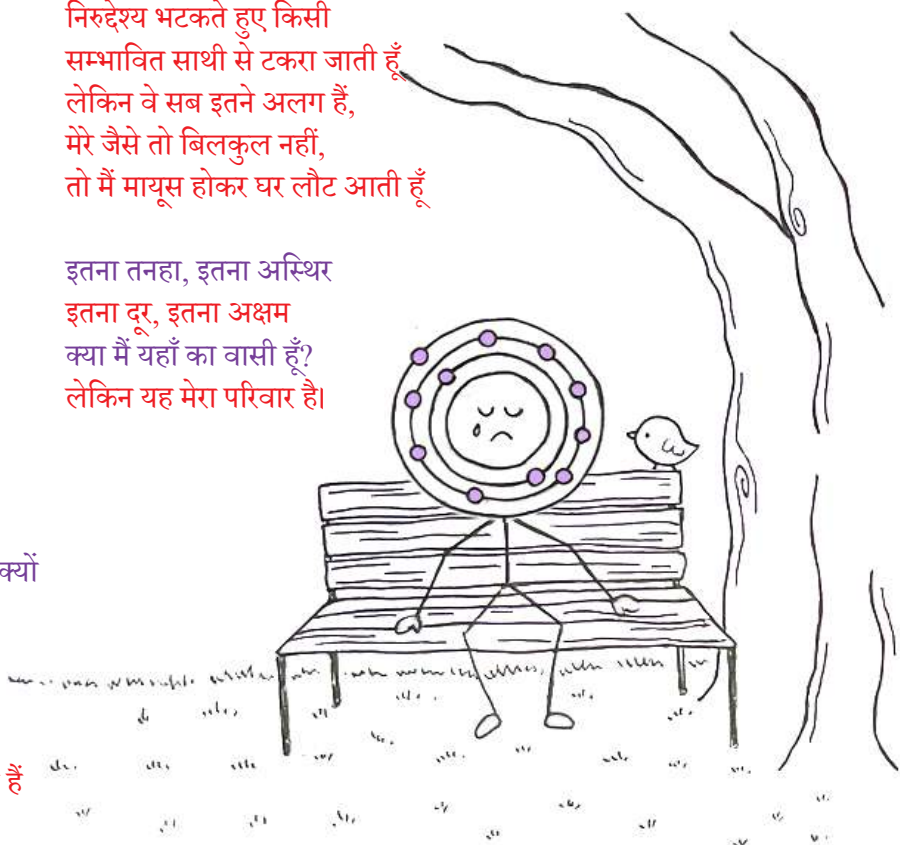 निरुद्देश्य भटकते हुए किसी
सम्भावित साथी से टकरा जाती हूँ
लेकिन वे सब इतने अलग हैं,
मेरे जैसे तो बिलकुल नहीं,
तो मैं मायूस होकर घर लौट आती हूँ
इतना तनहा, इतना अस्थिर
इतना दूर, इतना अक्षम
क्या मैं यहाँ का वासी हूँ?
लेकिन यह मेरा परिवार है।
क्यों
हैं